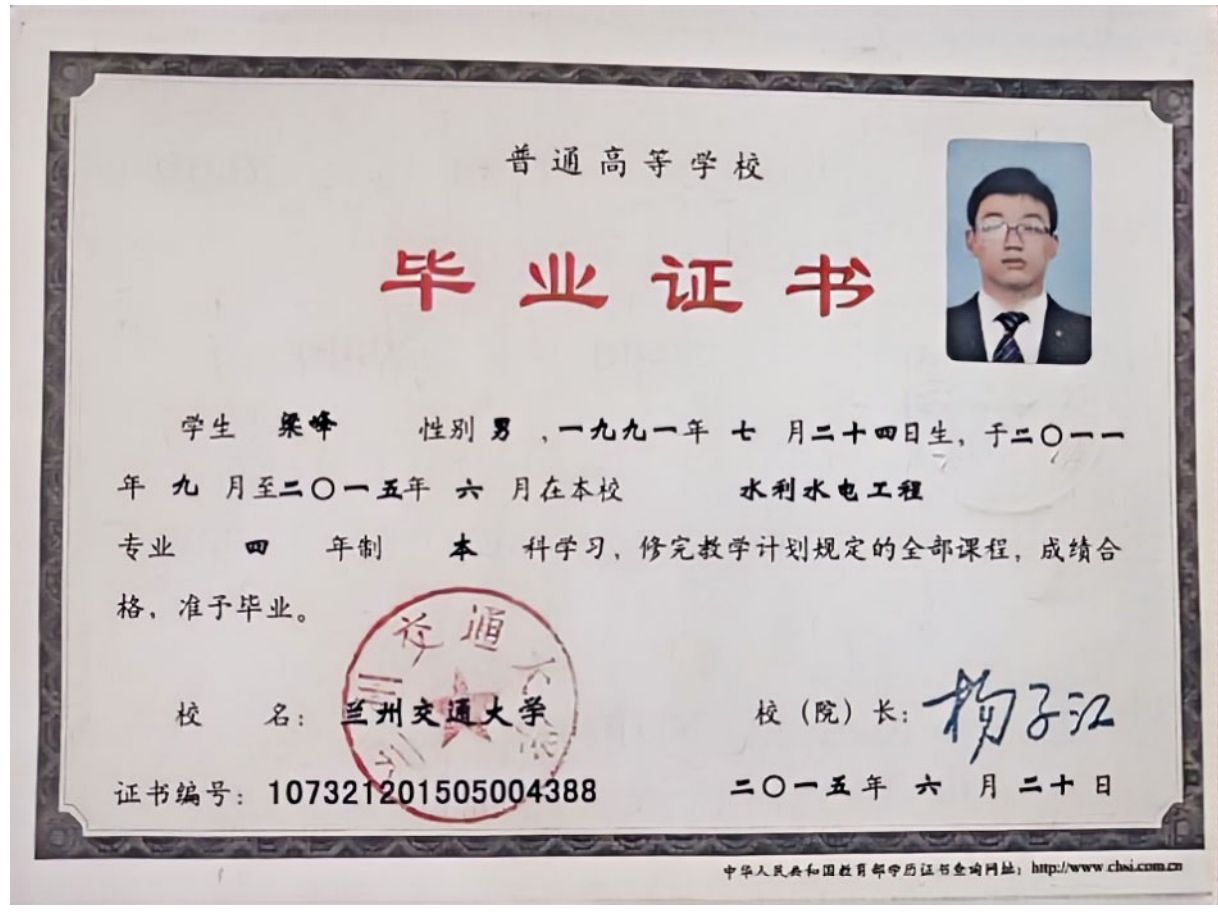 普通高等学校
毕业证书
学生 梁峰 性别 男 ，一九九一年 七 月二十四日生，于二〇一一
年 九 月至二〇一五年 六 月在本校 水利水电工程
专业 四 年制 本 科学习，修完教学计划规定的全部课程，成绩合
格，准予毕业。
校 名：兰州交通大学 校（院）长：杨子江
证书编号：107321201505004388 二〇一五年 六 月 二十 日
中华人民共和国教育部学历证书查询网址：http://www.chsi.com.cn